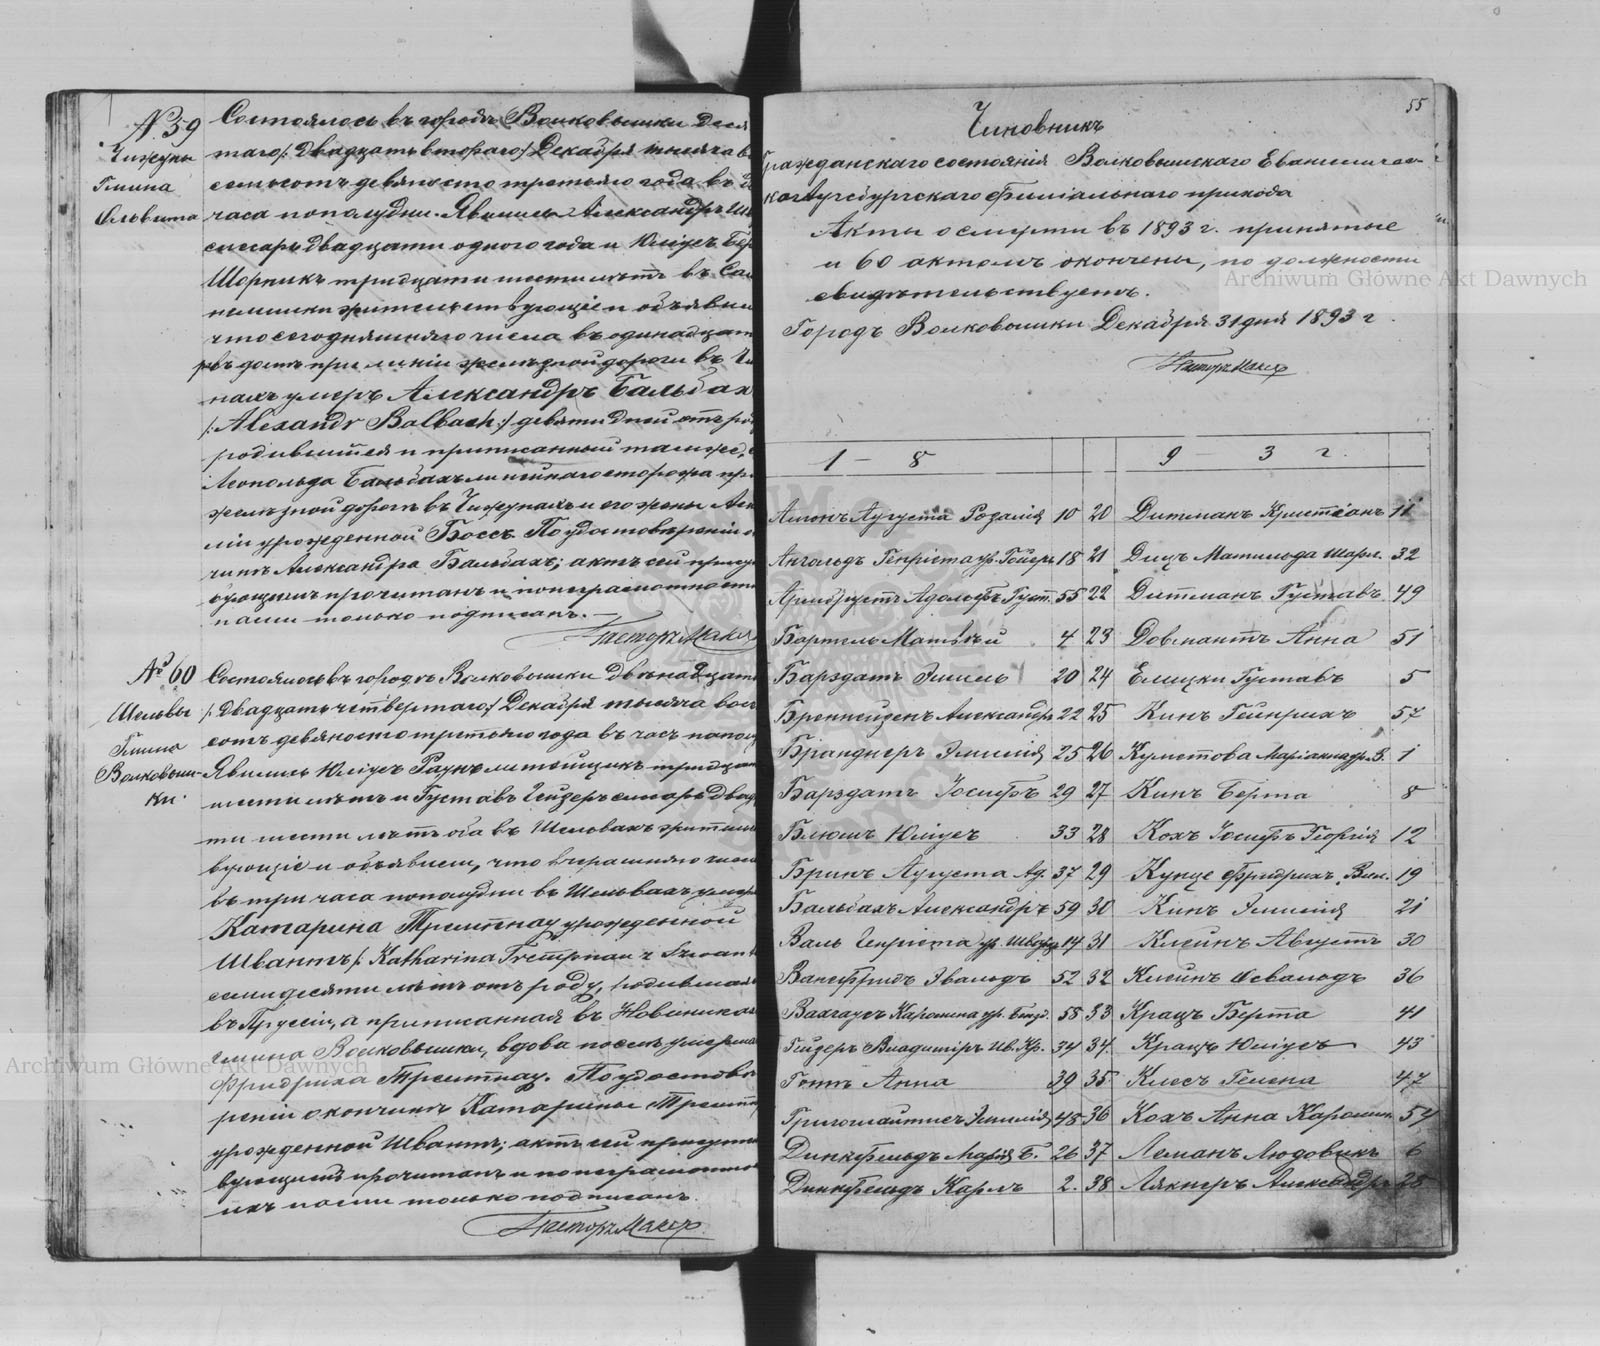 № 59
Чижуны
Гмина
Ольвита
Состоялось въ городѣ Волковышки Деся
таго /: Двадцать втораго :/ Декабря тысяча во
семьсотъ девяносто третьяго года въ
часа пополудни. Явились Александръ
слесарь двадцати одного года и Юліусъ
Шорникъ тридцати шести лѣтъ въ
жительствующіе и объявили
что сегодняшняго числа въ одинадцат
домѣ при линіи желѣзной дороги въ
нахъ умеръ Александръ Бальбах
/: Alexandr Balbach :/ девяти дней отъ ро
родившійся и приписанный тамже,
Леопольда Бальбахъ линейнаго сторожа пр
желѣзной дорогѣ въ Чижунахъ и его жены
ліи урожденной Боссъ. По удостовѣреніи о
чинѣ Александра Бальбахъ; актъ сей прису
вующимъ прочитанъ и по неграмотности
нами только подписанъ. —
Пасторъ Махъ
№ 60
Шельвы
Гмина
Волковыш-
ки.
Состоялось въ городѣ Волковышки двѣнадцат
/: Двадцать четвертаго :/ Декабря тысяча вос
сотъ девяносто третьяго года въ часъ попол
Явились Юліусъ литейщикъ тридца
шести лѣтъ и Густавъ Гейзеръ слесарь двад
ти шести лѣтъ оба въ Шельвахъ жител
вующіе и объявили, что вчерашняго числ
въ три часа пополудни въ Шельвахъ умер
Катарина Тремпнау урожденной
Швантъ /: Katharina Trempnau z Szwant
семидесяти лѣтъ отъ роду, родивша
въ Пруссіи, а приписанная въ
гмина Волковышки, вдова послѣ умерша
Фридриха Тремпнау. По удостовѣ
реніи о кончинѣ Катарины Тремпн
урожденной Швантъ; актъ сей присутст
вующимъ прочитанъ и по неграмотно
ихъ нами только подписанъ.
Пасторъ Махъ
55
Чиновникъ
Гражданскаго состоянія Волковышскаго Евангеличес-
ко Аугсбургскаго Филіальнаго прихода
Акты о смерти въ 1893 г. принятые
и 60 актомъ окончены, по должности
свидѣтельствуетъ.
Городъ Волковышки Декабря 31 дня 1893 г.
Пасторъ Махъ
1 — 8 9 — 3 г.
Августа Розалія 10 20 Дитманъ Кристіанъ 11
Арнгольдъ Генріета ур. 18 21 Дицъ Матильда Шарл. 32
Армбрустъ Адольфъ Густ. 55 22 Дитманъ Густавъ 49
Бартель Матвѣй 4 23 Довмантъ Анна 51
Барздатъ Эмиль 20 24 Елицки Густавъ 5
Бреннейзенъ Александръ 22 25 Кинъ Гейнрихъ 57
Бранднеръ Эмилія 25 26 1
Барздатъ Іосифъ 29 27 Кинъ Берта 8
Блюмъ Юліусъ 33 28 Кохъ Іосифъ Георгій 12
Бринъ Августа Ад. 37 29 Кунце Фридрихъ Вил. 19
Бальбахъ Александръ 59 30 Кинъ Эмилія 21
Валь Генріета ур. Шварцъ 14 31 Клейнъ Августъ 30
Ванфридъ Эвальдъ 52 32 Клейнъ Освальдъ 36
Каролина ур. 58 33 Кращъ Берта 41
Гейзеръ Владиміръ Ив. Кр. 34 34 Кращъ Юліусъ 43
Готъ Анна 39 35 Клесъ Гелена 47
Григолайтисъ Эмилія 48 36 Кохъ Анна Каролин. 54
Динкфельдъ Марія Б. 26 37 Леманъ Людовикъ 6
Динкфельдъ Карлъ 2. 38 Лякнеръ Александръ 28
Archiwum Główne Akt Dawnych
Archiwum Główne Akt Dawnych